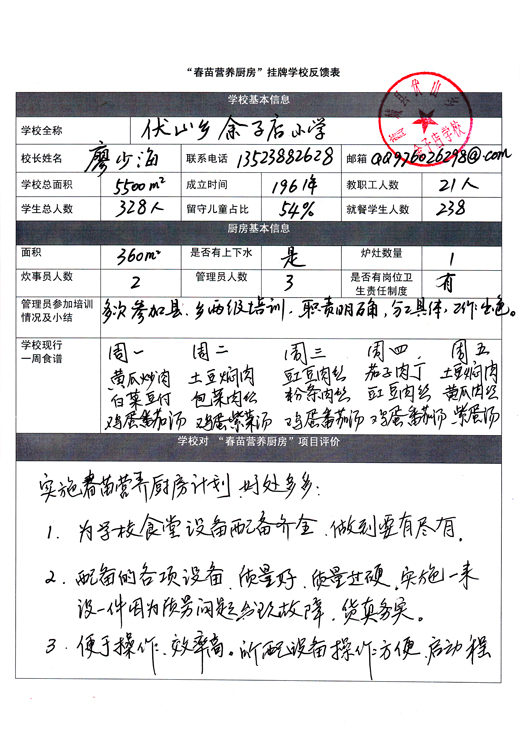 “春苗营养厨房”挂牌学校反馈表
学校基本信息
学校全称 伏山乡余子店小学
校长姓名 廖少海 联系电话 13523882628 邮箱 QQ976026298@.com
学校总面积 5500m² 成立时间 1961年 教职工人数 21人
学生总人数 328人 留守儿童占比 54% 就餐学生人数 238
厨房基本信息
面积 360m² 是否有上下水 是 炉灶数量 1
炊事员人数 2 管理员人数 3 是否有岗位卫生责任制度 有
管理员参加培训情况及小结 多次参加县、乡两级培训，职责明确，分工具体，工作出色。
学校现行一周食谱
周一 周二 周三 周四 周五
黄瓜炒肉 土豆焖肉 豇豆肉丝 茄子肉丁 土豆焖肉
白菜豆付 包菜肉丝 粉条肉丝 豇豆肉丝 黄瓜肉丝
鸡蛋番茄汤 鸡蛋紫菜汤 鸡蛋番茄汤 鸡蛋番茄汤 紫蛋汤
学校对 “春苗营养厨房”项目评价
实施春苗营养厨房计划，好处多多：
1、为学校食堂设备配备齐全、做到要有尽有。
2、配备的各项设备、质量好、质量过硬，实施一来
没一件因为质量问题出现故障，货真务实。
3、便于操作、效率高。所配设备操作方便、启动程